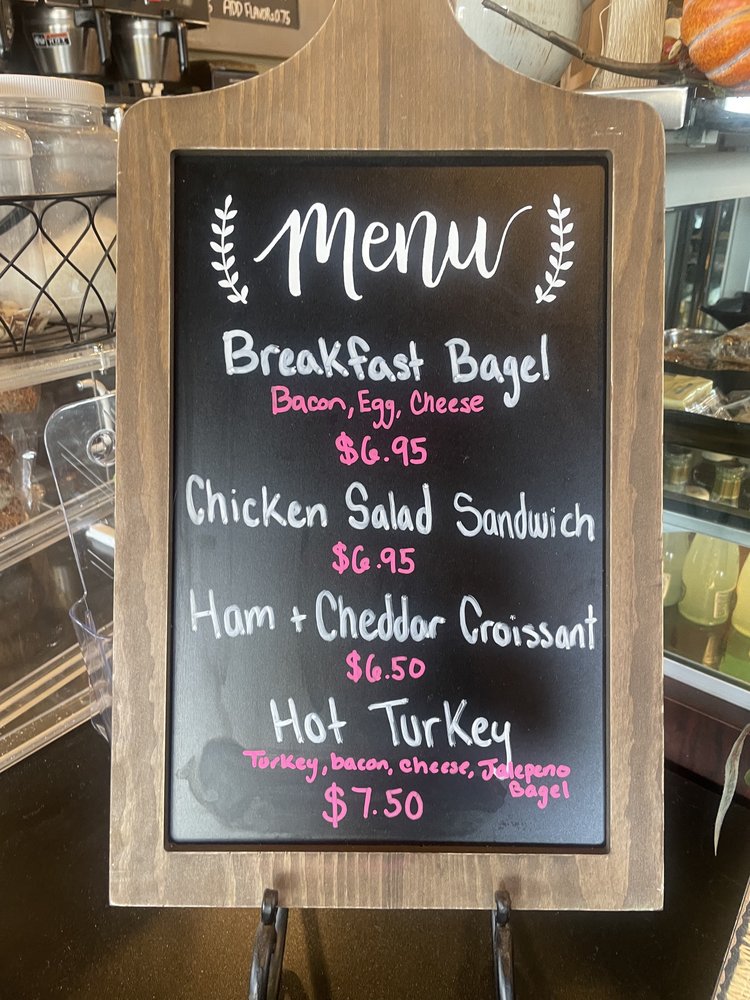 ADD FLAVOR 0.75
Menu
Breakfast Bagel
Bacon, Egg, Cheese
$6.95
Chicken Salad Sandwich
$6.95
Ham + Cheddar Croissant
$6.50
Hot Turkey
Turkey, bacon, cheese, Jalepeno
Bagel
$7.50